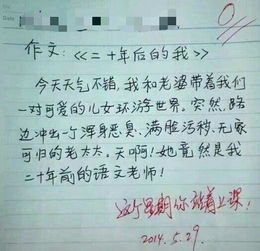 0
作文：《二十年后的我》
今天天气不错，我和老婆带着我们
一对可爱的儿女环游世界。突然，路
边冲出一个浑身恶臭、满脸污秽、无家
可归的老太太。天啊！她竟然是我
二十年前的语文老师！
这个星期你站着上课！
2014.5.29